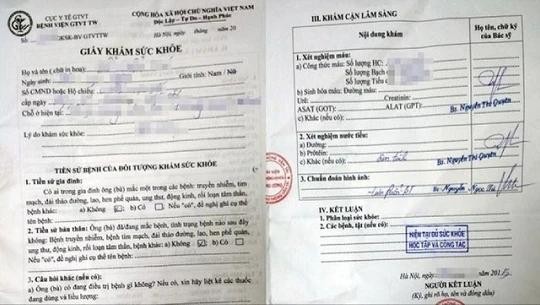 CỤC Y TẾ GTVT
BỆNH VIỆN GTVT TTW
CỘNG HÒA XÃ HỘI CHỦ NGHĨA VIỆT NAM
Độc Lập - Tự Do - Hạnh Phúc
/GKSK-BV GTVTTW
Hà Nội, tháng năm 20
GIẤY KHÁM SỨC KHỎE
Họ và tên (chữ in hoa):
Ngày sinh:
Giới tính: Nam / Nữ
Số CMND hoặc Hộ chiếu:
cấp ngày
Chỗ ở hiện tại:
Lý do khám sức khỏe:
TIỀN SỬ BỆNH CỦA ĐỐI TƯỢNG KHÁM SỨC KHỎE
1. Tiền sử gia đình:
Có ai trong gia đình ông (bà) mắc một trong các bệnh: truyền nhiễm, tim
mạch, đái tháo đường, lao, hen phế quản, ung thư, động kinh, rối loạn tâm thần,
bệnh khác: a) Không b) Có Nếu "có", đề nghị ghi cụ thể
tên bệnh:
2. Tiền sử bản thân: Ông (bà) đã/đang mắc bệnh, tình trạng bệnh nào sau đây
không: Bệnh truyền nhiễm, bệnh tim mạch, đái tháo đường, lao, hen phế quản,
ung thư, động kinh, rối loạn tâm thần, bệnh khác: a) Không b) Có
Nếu "có", đề nghị ghi cụ thể tên bệnh:
3. Câu hỏi khác (nếu có):
a) Ông (bà) có đang điều trị bệnh gì không? Nếu có, xin hãy liệt kê các thuốc
đang dùng và liều lượng:
III. KHÁM CẬN LÂM SÀNG
Nội dung khám
Họ tên, chữ ký của Bác sỹ
1. Xét nghiệm máu:
a) Công thức máu: Số lượng HC:
Số lượng Bạch
Số lượng Tiểu
b) Sinh hóa máu: Đường máu:
Urê: Creatinin:
ASAT (GOT): ALAT (GPT):
c) Khác (nếu có):
Bs. Nguyễn Thị Quyên
2. Xét nghiệm nước tiểu:
a) Đường:
b) Prôtêin:
c) Khác (nếu có): âm tính
Bs. Nguyễn Thị Quyên
3. Chuẩn đoán hình ảnh:
Bs. Nguyễn Ngọc
IV. KẾT LUẬN
1. Phân loại sức khỏe:
2. Các bệnh, tật (nếu có):
HIỆN TẠI ĐỦ SỨC KHỎE
HỌC TẬP VÀ CÔNG TÁC
Hà Nội, ngày 201
NGƯỜI KẾT LUẬN
(Ký, ghi rõ họ, tên và đóng dấu)